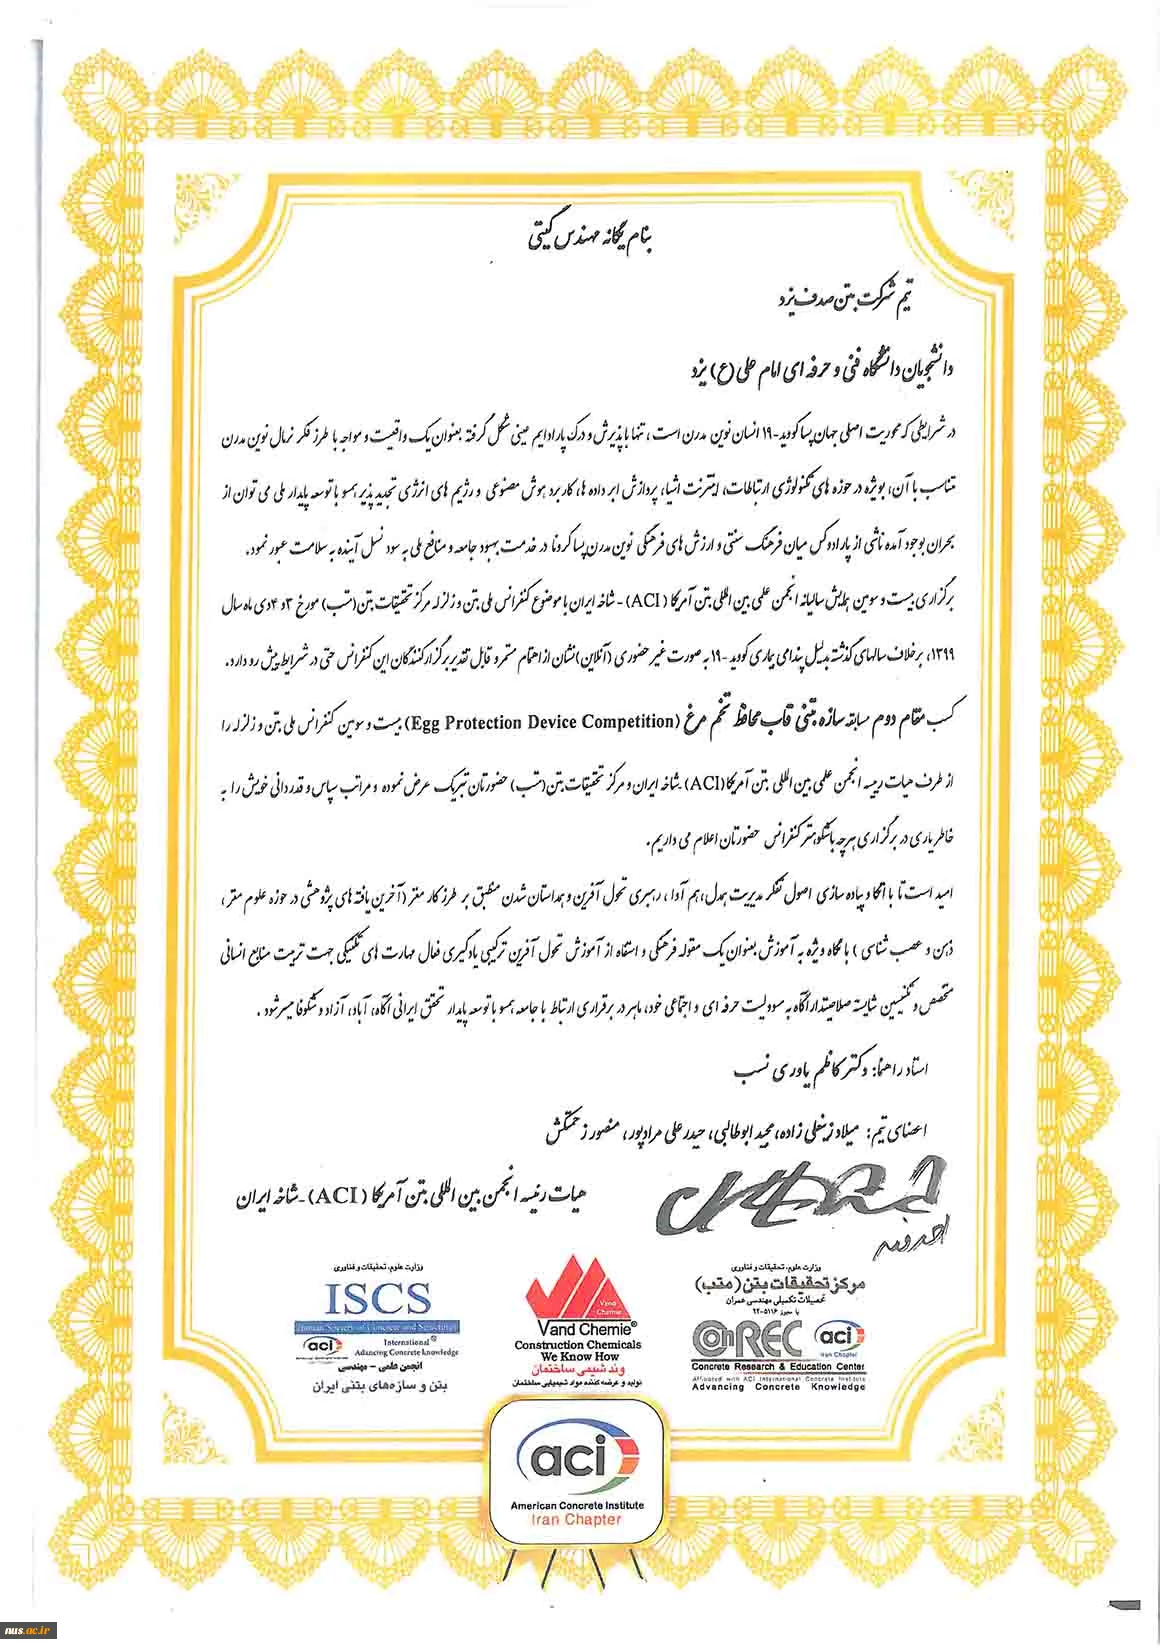 بنام یگانه مهندس گیتی
تیم شرکت بتن صدف یزد
دانشجویان دانشگاه فنی و حرفه ای امام علی (ع) یزد
در شرایطی که محوریت اصلی جهان پسا کووید-۱۹ انسان نوین مدرن است، تنها با پذیرش و درک پارادایم عینی شکل گرفته بعنوان یک واقعیت و مواجه با طرز فکر نرمال نوین مدرن
متناسب با آن، بویژه در حوزه های تکنولوژی ارتباطات، اینترنت اشیا، پردازش ابر داده ها، کاربرد هوش مصنوعی و رژیم های انرژی تجدید پذیر همسو با توسعه پایدار ملی می توان از
بحران بوجود آمده ناشی از پارادوکس میان فرهنگ سنتی و ارزش های فرهنگی نوین مدرن پسا کرونا در خدمت بهبود جامعه و منافع ملی به سود نسل آینده به سلامت عبور نمود.
برگزاری بیست و سومین همایش سالیانه انجمن علمی بین المللی بتن آمریکا (ACI) - شاخه ایران با موضوع کنفرانس ملی بتن و زلزله مرکز تحقیقات بتن (متب) مورخ ۳ و ۴ دی ماه سال
۱۳۹۹، برخلاف سالهای گذشته بدلیل پندامی بیماری کووید -۱۹ به صورت غیر حضوری (آنلاین) نشان از اهتمام مستمر و قابل تقدیر برگزار کنندگان این کنفرانس حتی در شرایط پیش رو دارد.
کسب مقام دوم مسابقه سازه بتنی قاب محافظ تخم مرغ (Egg Protection Device Competition) بیست و سومین کنفرانس ملی بتن و زلزله را
از طرف هیات رییسه انجمن علمی بین المللی بتن آمریکا (ACI) -شاخه ایران و مرکز تحقیقات بتن (متب) حضورتان تبریک عرض نموده و مراتب سپاس و قدردانی خویش را به
خاطر یاری در برگزاری هرچه باشکوهتر کنفرانس حضورتان اعلام می داریم.
امید است تا با اتکا و پیاده سازی اصول تفکر مدیریت همدل، هم آوا، رهبری تحول آفرین و همداستان شدن منطبق بر طرز کار مغز (آخرین یافته های پژوهشی در حوزه علوم مغز،
ذهن و عصب شناسی) با نگاه ویژه به آموزش بعنوان یک مقوله فرهنگی و استفاه از آموزش تحول آفرین ترکیبی یادگیری فعال مهارت های تکنیکی جهت تربیت منابع انسانی
متخصص و تکنسین شایسته صلاحیتدار آگاه به مسوولیت حرفه ای و اجتماعی خود، ماهر در برقراری ارتباط با جامعه همسو با توسعه پایدار تحقق ایرانی آگاه، آباد، آزاد و شکوفا میسر شود.
استاد راهنما: دکتر کاظم یاوری نسب
اعضای تیم: میلاد زینعلی زاده، مجید ابوطالبی، حیدر علی مرادپور، منصور زحمتکش
هیات رئیسه انجمن بین المللی بتن آمریکا (ACI)-شاخه ایران
وزارت علوم، تحقیقات و فناوری
ISCS
Iranian Society of Concrete and Structures
aci International®
Advancing Concrete knowledge
انجمن علمی - مهندسی
بتن و سازه‌های بتنی ایران
Vand Chemie
Vand Chemie®
Construction Chemicals
We Know How
وند شیمی ساختمان
تولید و عرضه کننده مواد شیمیایی ساختمان
وزارت علوم، تحقیقات و فناوری
مرکز تحقیقات بتن (متب)
تحصیلات تکمیلی مهندسی عمران
با مجوز ۲۲-۵۱۱۶
ConREC aci Iran Chapter
Concrete Research & Education Center
Affiliated with ACI International Concrete Institute
Advancing Concrete Knowledge
aci
American Concrete Institute
Iran Chapter
nus.ac.ir